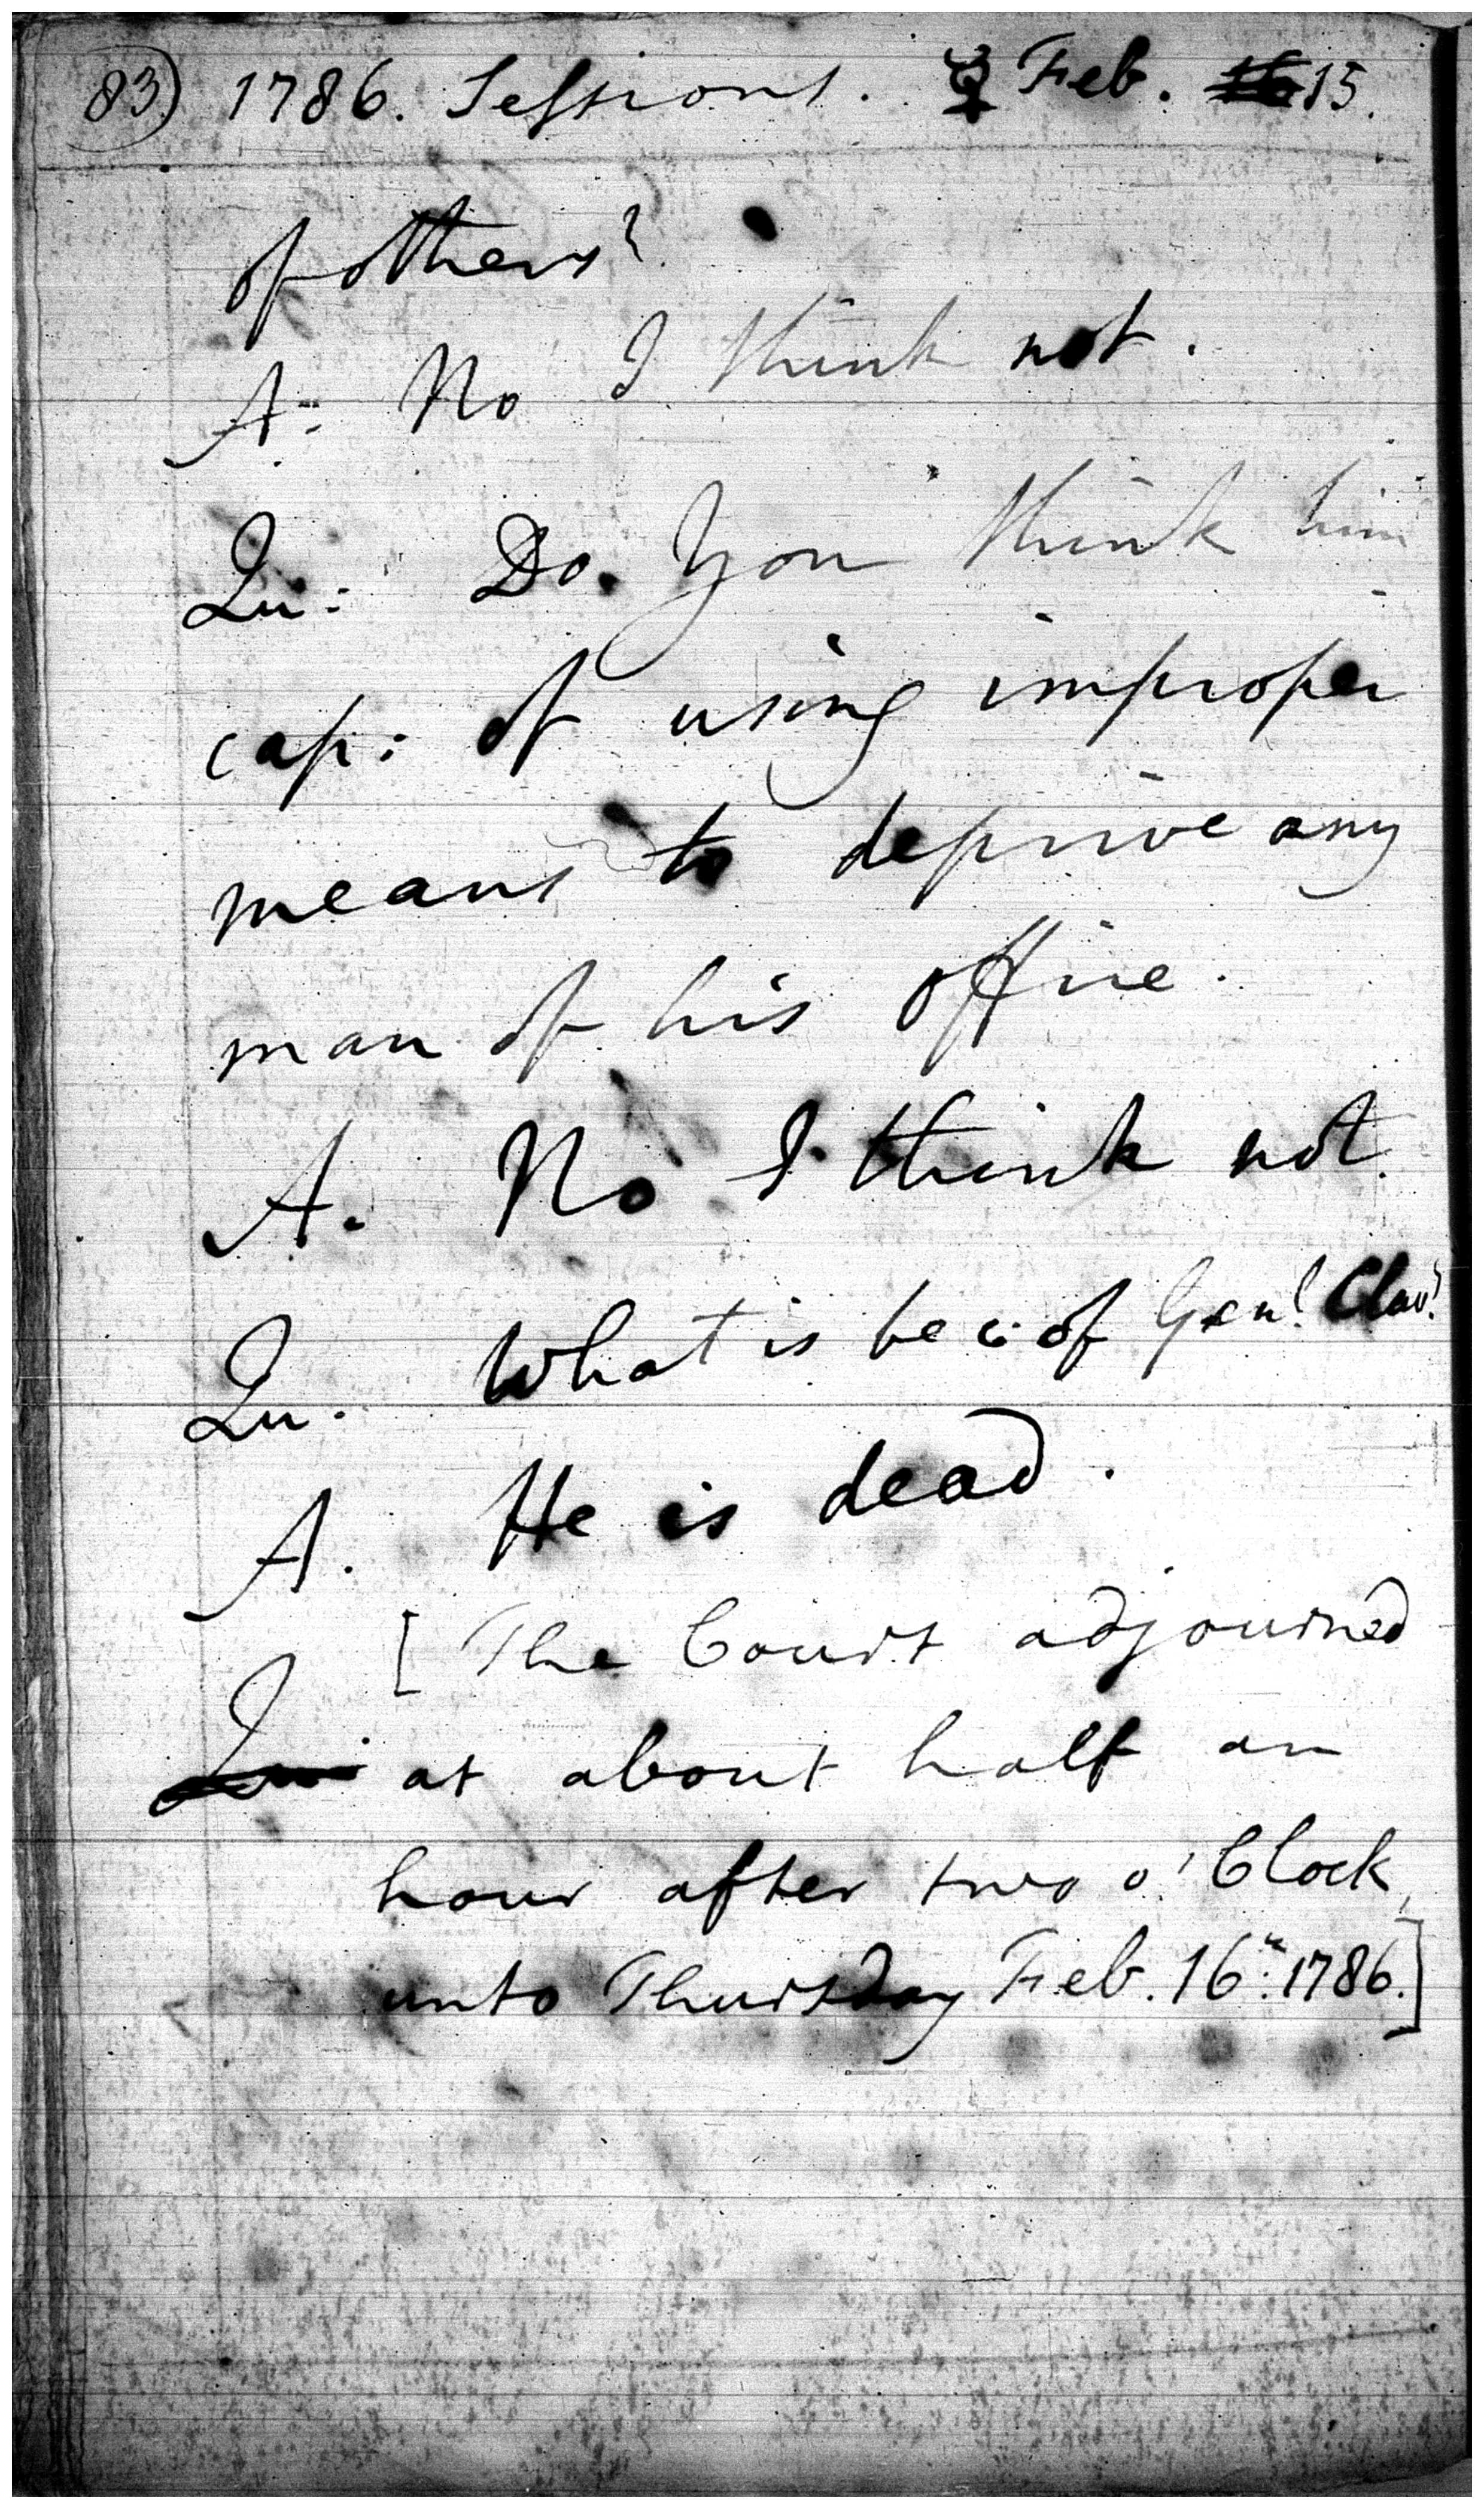 83) 1786. Sessions. ☿ Feb. 15.
of others?
A: No I think not.
Qu: Do you think him
cap: of using improper
means to deprive any
man of his office.
A. No I think not.
Qu. What is bec: of Genl. Clav?
A. He is dead.
[The Court adjourned
Qu at about half an
hour after two o'Clock,
unto Thursday Feb. 16th: 1786.]